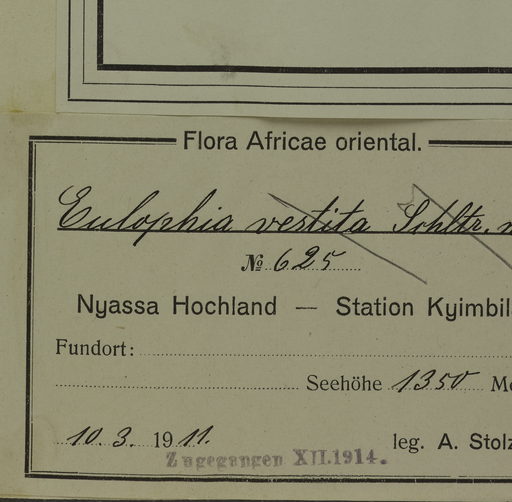 Flora Africae oriental.
Eulophia vestita Schltr. n
№ 625
Nyassa Hochland — Station Kyimbil
Fundort:
Seehöhe 1350 Me
10. 3. 1911.
leg. A. Stolz
Zugegangen XII.1914.